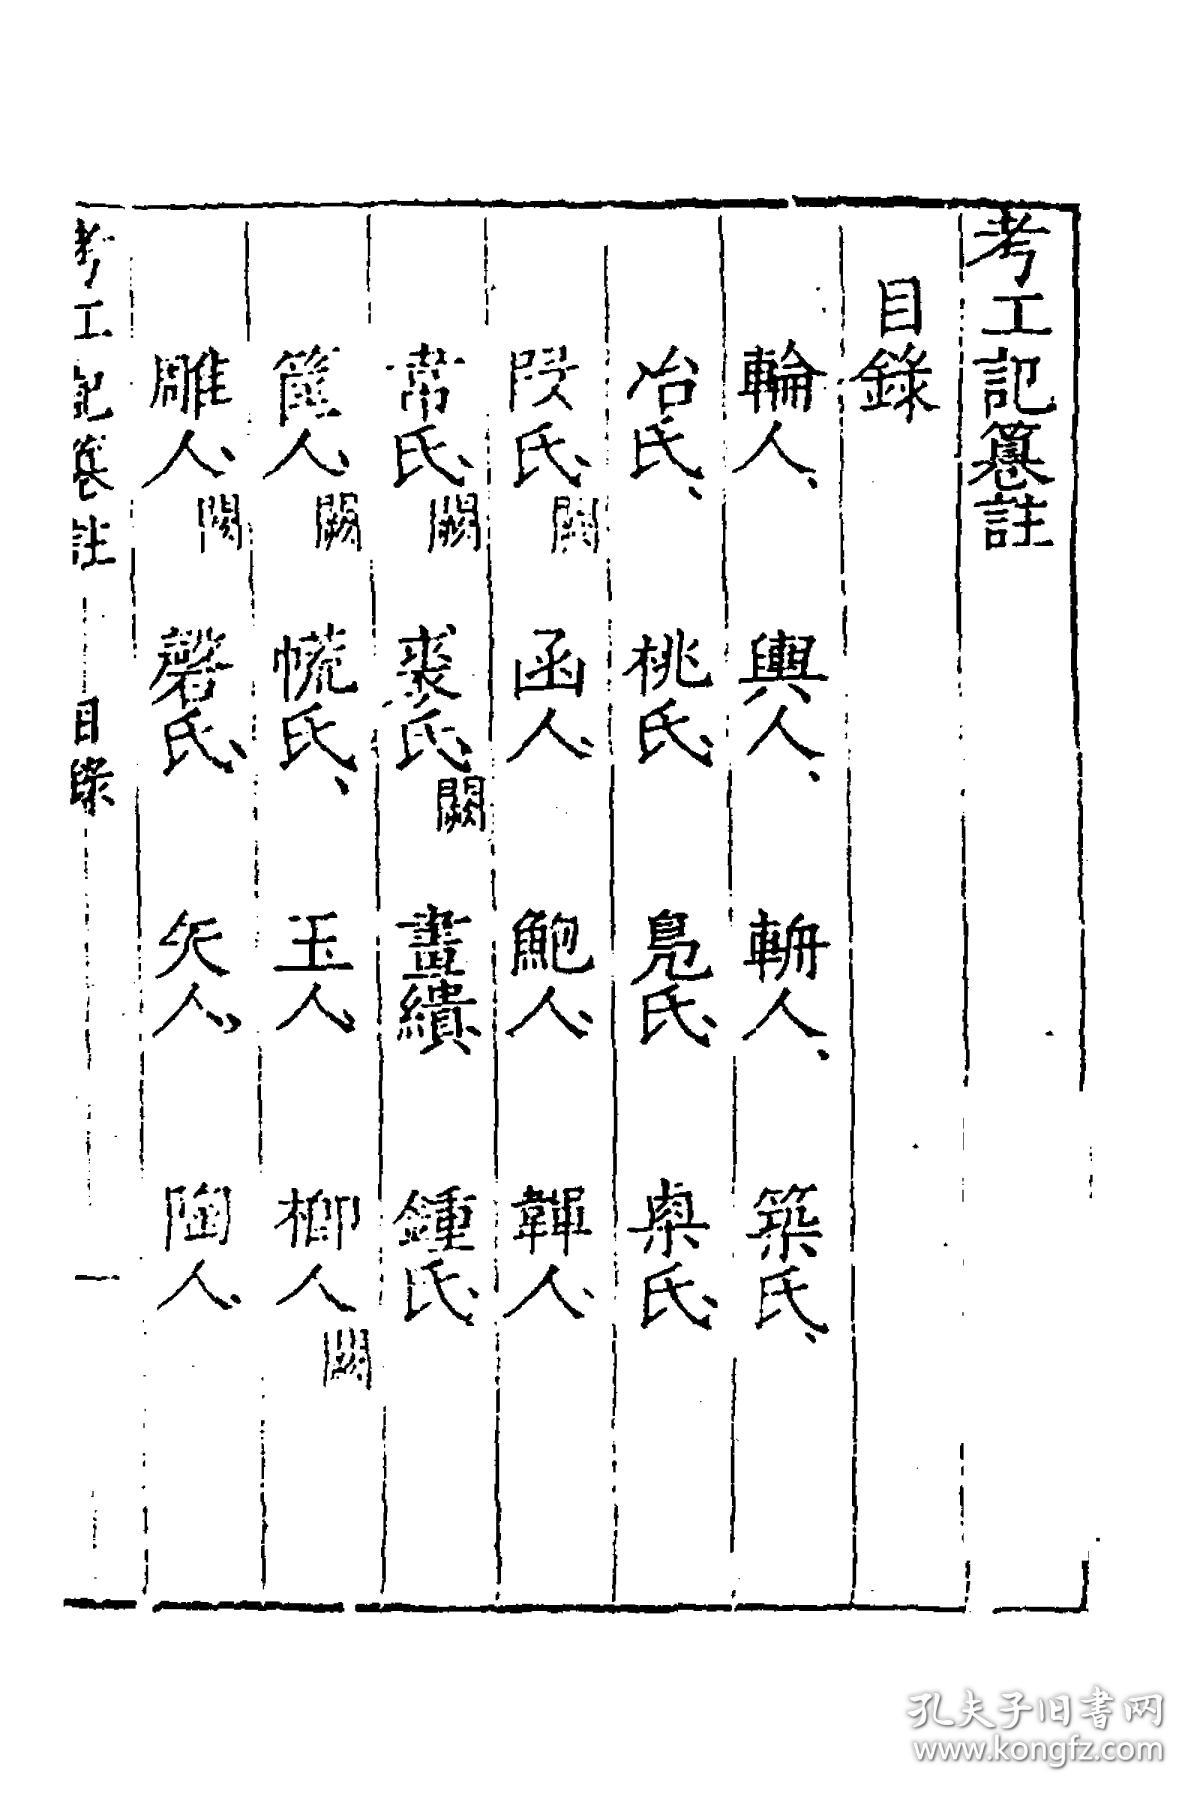 考工記篹註
目錄
輪人、輿人、輈人、築氏、
冶氏、桃氏、鳧氏、㮚氏、
段氏、闕函人、鮑人、韗人、
韋氏、闕裘氏、闕畫繢鍾氏、
筐人、闕㡛氏、玉人、櫛人闕
雕人、闕磬氏、矢人、陶人、
考工記篹註
目錄
一
孔夫子旧書网
www.kongfz.com